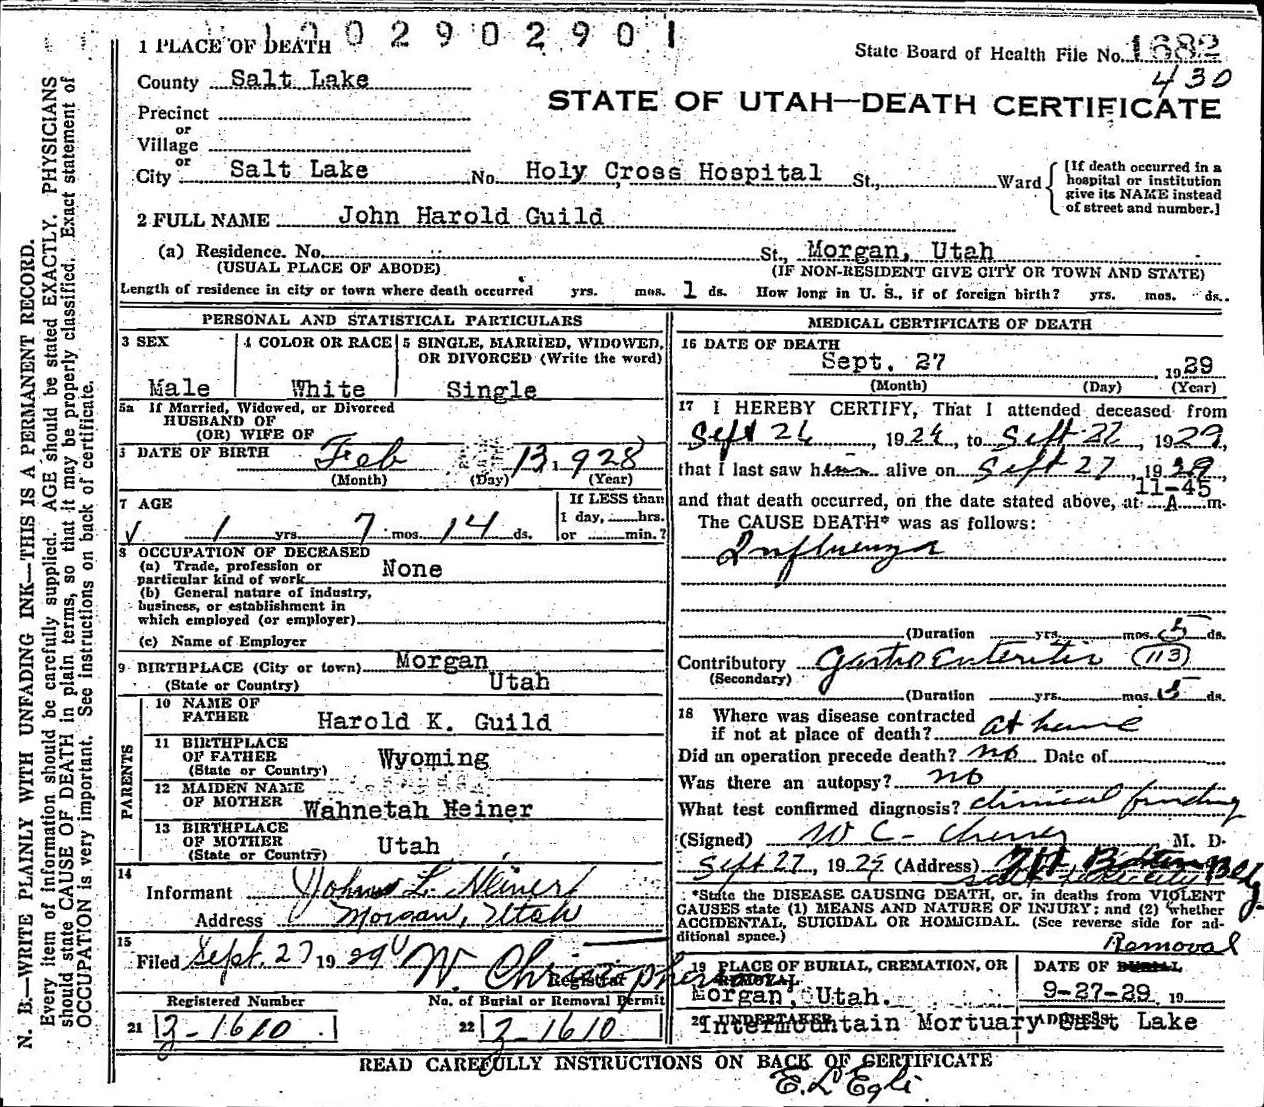 1 0 0 2 9 0 2 9 0 1
1 PLACE OF DEATH
State Board of Health File No. 1682
430
County Salt Lake
STATE OF UTAH—DEATH CERTIFICATE
Precinct
or
Village
or
City Salt Lake No. Holy Cross Hospital St., Ward
[If death occurred in a
hospital or institution
give its NAME instead
of street and number.]
2 FULL NAME John Harold Guild
(a) Residence. No. St., Morgan, Utah
(USUAL PLACE OF ABODE) (IF NON-RESIDENT GIVE CITY OR TOWN AND STATE)
Length of residence in city or town where death occurred yrs. mos. 1 ds. How long in U. S., if of foreign birth? yrs. mos. ds.
PERSONAL AND STATISTICAL PARTICULARS
3 SEX
Male
4 COLOR OR RACE
White
5 SINGLE, MARRIED, WIDOWED,
OR DIVORCED (Write the word)
Single
5a If Married, Widowed, or Divorced
HUSBAND OF
(OR) WIFE OF
DATE OF BIRTH Feb 13, 1928
(Month) (Day) (Year)
7 AGE
1 yrs. 7 mos. 14 ds.
If LESS than
1 day, hrs.
or min.?
8 OCCUPATION OF DECEASED
(a) Trade, profession or
particular kind of work None
(b) General nature of industry,
business, or establishment in
which employed (or employer)
(c) Name of Employer
9 BIRTHPLACE (City or town) Morgan
(State or Country) Utah
PARENTS
10 NAME OF
FATHER Harold K. Guild
11 BIRTHPLACE
OF FATHER Wyoming
(State or Country)
12 MAIDEN NAME
OF MOTHER Wahnetah Heiner
13 BIRTHPLACE
OF MOTHER Utah
(State or Country)
14
Informant John L. Heiner
Address Morgan, Utah
15
Filed Sept. 27 1929 W. Christopherson
Registrar
Registered Number No. of Burial or Removal Permit
21 2-1610 22 2-1610
MEDICAL CERTIFICATE OF DEATH
16 DATE OF DEATH
Sept. 27 1929
(Month) (Day) (Year)
17 I HEREBY CERTIFY, That I attended deceased from
Sept 26, 1929, to Sept 27, 1929,
that I last saw him alive on Sept 27, 1929
and that death occurred, on the date stated above, at 11-45 A m.
The CAUSE DEATH* was as follows:
Influenza
(Duration yrs. mos. 5 ds.
Contributory Gastro Enteritis (113)
(Secondary)
(Duration yrs. mos. 5 ds.
18 Where was disease contracted
if not at place of death? at home
Did an operation precede death? no Date of
Was there an autopsy? no
What test confirmed diagnosis? clinical finding
(Signed) W C- M. D.
Sept 27, 1929 (Address) Boston Bldg
*State the DISEASE CAUSING DEATH, or, in deaths from VIOLENT
CAUSES state (1) MEANS AND NATURE OF INJURY; and (2) whether
ACCIDENTAL, SUICIDAL OR HOMICIDAL. (See reverse side for ad-
ditional space.)
Removal
19 PLACE OF BURIAL, CREMATION, OR
REMOVAL
Morgan, Utah.
DATE OF BURIAL
9-27-29 19
20 UNDERTAKER ADDRESS
Intermountain Mortuary Salt Lake
READ CAREFULLY INSTRUCTIONS ON BACK OF CERTIFICATE
E. L Egli
N. B.—WRITE PLAINLY WITH UNFADING INK—THIS IS A PERMANENT RECORD.
Every item of information should be carefully supplied. AGE should be stated EXACTLY. PHYSICIANS
should state CAUSE OF DEATH in plain terms, so that it may be properly classified. Exact statement of
OCCUPATION is very important. See instructions on back of certificate.